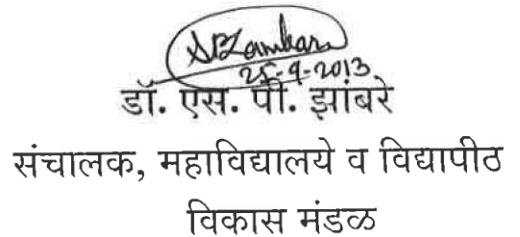 25-9-2013
डॉ. एस. पी. झांबरे
संचालक, महाविद्यालये व विद्यापीठ
विकास मंडळ